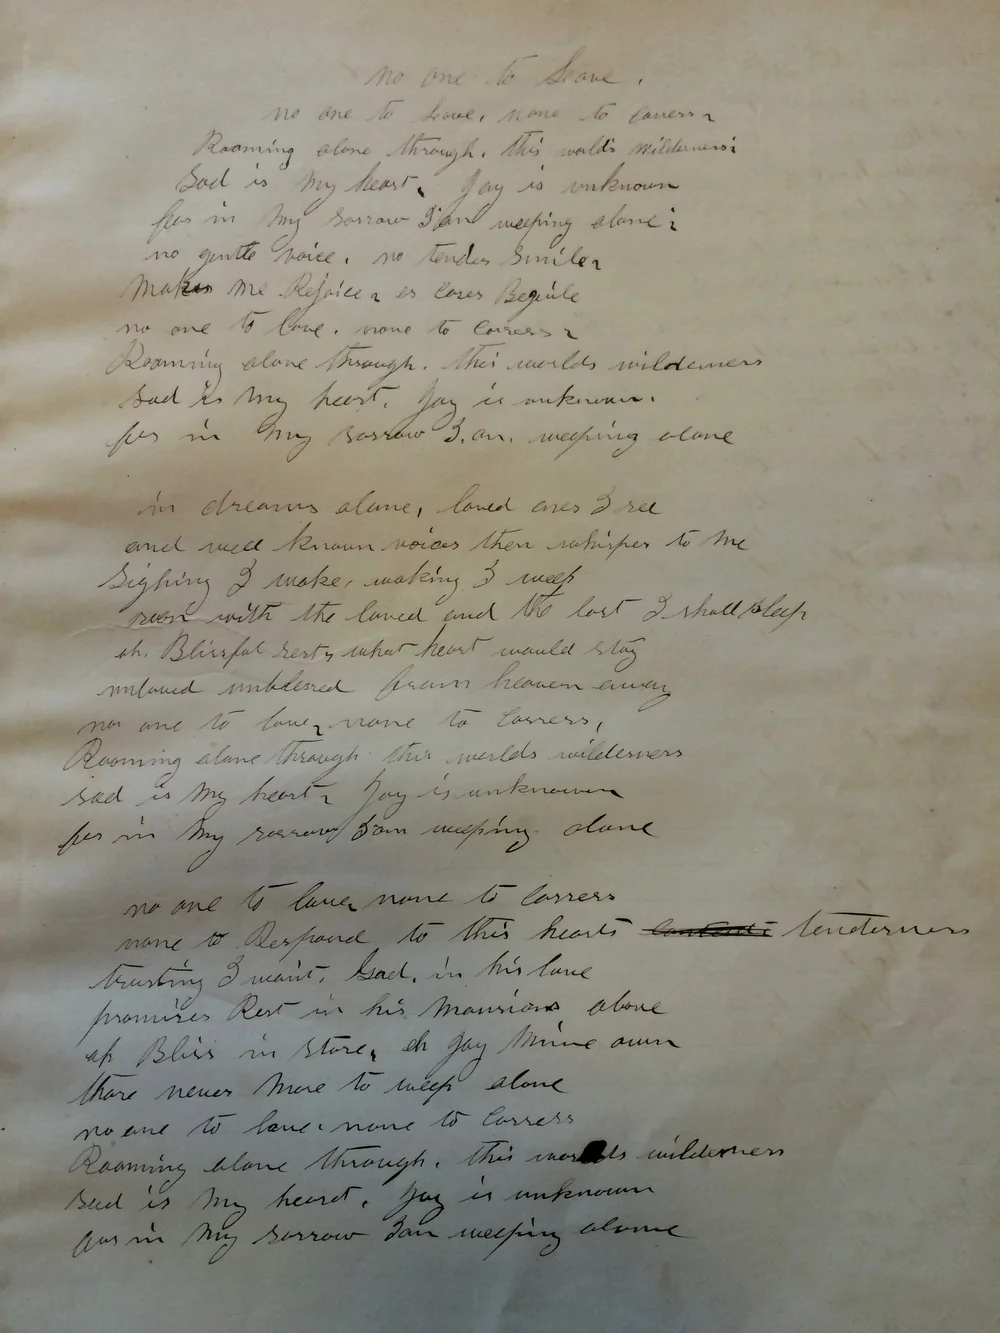 no one to Love.
no one to Love, none to Carress,
Roaming alone through. this worlds wilderness;
Sad is My heart, Joy is unknown
for in My sorrow I am weeping alone;
no gentle voice, no tender Smile,
Makes Me Rejoice, or Cares Beguile
no one to love. none to Carress,
Roaming alone through. this worlds wilderness
Sad is My heart. Joy is unknown.
for in My sorrow I.am. weeping alone
in dreams alone, loved ones I see
and well known voices then whisper to Me
Sighing I wake, waking I weep
soon with the loved and the lost I shall sleep
oh. Blissful rest, what heart would stay
unloved unblessed from heaven away
no one to love, none to Carress,
Roaming alone through this worlds wilderness
sad is My heart, Joy is unknown
for in My sorrow I am weeping alone
no one to love, none to Carress
none to Respond to this hearts tenderness
trusting I wait. God. in his love
promises Rest in his Mansions above
oh Bliss in Store, oh Joy Mine own
thare never More to weep alone
no one to love. none to Carress
Roaming alone through. this worlds wilderness
Sad is My heart. Joy is unknown
for in My Sorrow I am weeping alone